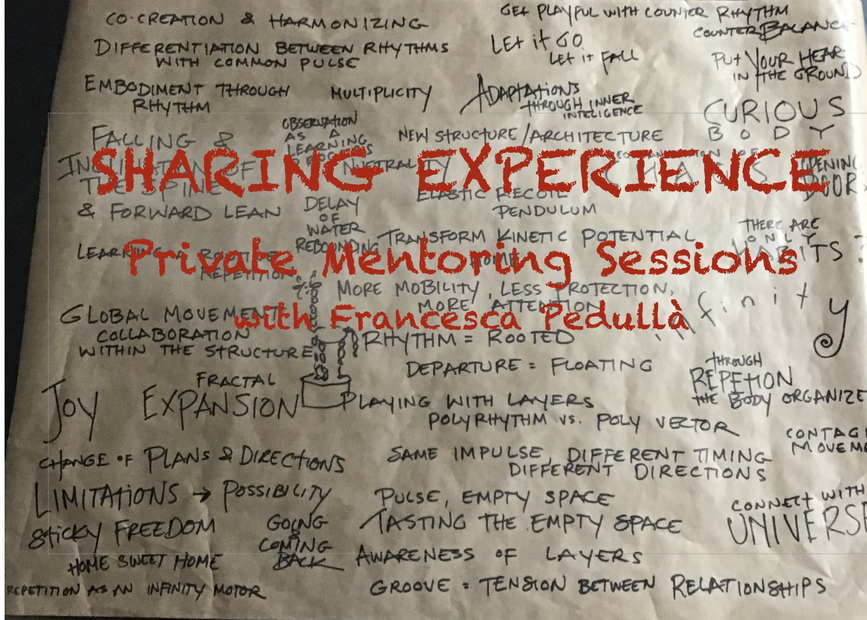 CO-CREATION & HARMONIZING
DIFFERENTIATION BETWEEN RHYTHMS
WITH COMMON PULSE
EMBODIMENT THROUGH
RHYTHM
MULTIPLICITY
GET PLAYFUL WITH COUNTER RHYTHM
COUNTERBALANCE
LET it GO
LET it FALL
PUT YOUR HEAR
IN THE GROUND
ADAPTATIONS
THROUGH INNER
INTELIGENCE
CURIOUS
BODY
OBSERVATION
AS A
LEARNING
NEW STRUCTURE/ARCHITECTURE
FALLING &
OF
THE SPINE
& FORWARD LEAN
SHARING EXPERIENCE
OPENING
DOOR
ELASTIC RECOIL
PENDULUM
DELAY
OF
WATER
REBOUNDING
TRANSFORM KINETIC POTENTIAL
THERE ARE
ONLY
HABITS?
REPETITION
Private Mentoring Sessions
MORE MOBILITY, LESS PROTECTION,
MORE ATTENTION
infinity
with Francesca Pedullà
GLOBAL MOVEMENT
COLLABORATION
WITHIN THE STRUCTURE
RHYTHM = ROOTED
DEPARTURE = FLOATING
THROUGH
REPETION
THE BODY ORGANIZE
FRACTAL
JOY EXPANSION
PLAYING WITH LAYERS
POLYRHYTHM vs. POLY VECTOR
CONTAG
MOVEM
CHANGE OF PLANS & DIRECTIONS
SAME IMPULSE, DIFFERENT TIMING
DIFFERENT DIRECTIONS
LIMITATIONS → POSSIBILITY
PULSE, EMPTY SPACE
CONNECT WITH
UNIVERSE
STICKY FREEDOM
GOING
&
COMING
BACK
TASTING THE EMPTY SPACE
HOME SWEET HOME
AWARENESS OF LAYERS
REPETITION AS AN INFINITY MOTOR
GROOVE = TENSION BETWEEN RELATIONSHIPS